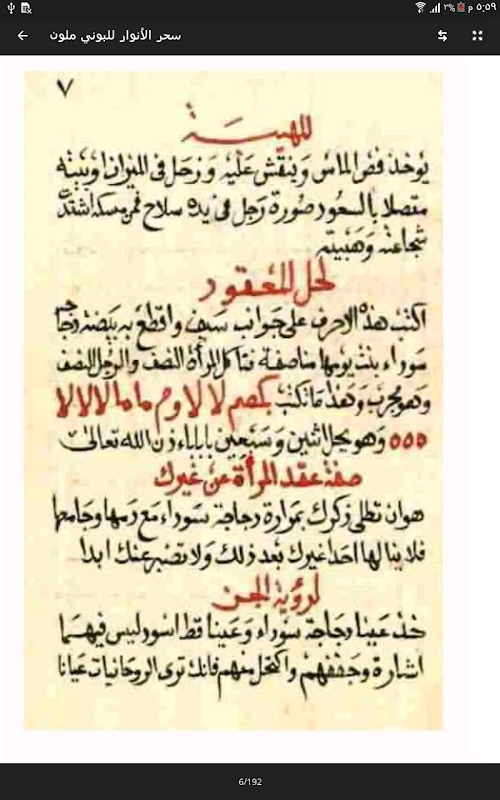 ٥:٥٩ م
٢%
سحر الأنوار للبوني ملون
٧
للهيبة
يوخذ فص الماس وينقش عليه وزحل في الميزان او بيته
متصلا بالسعود صورة رجل في يده سلاح فمن مسكه اشتدت
شجاعته وهيبته
لحل المعقود
اكتب هذه الاحرف على جوانب سيف واقطع به بيضة دجاجه
سوداء بنت يومها مناصفة فتاكل المرأة النصف والرجل النصف
وهو مجرب وهذا ما تكتب بكصم لا لا وم ما ما لا لا لا
٥٥٥ وهو يحل اثنين وسبعين بابا باذن الله تعالى
صفة عقد المرأة عن غيرك
هو ان تطلى ذكرك بمرارة دجاجة سوداء مع دمها وجامعها
فلا ينالها احدا غيرك بعد ذلك ولا تصبر عنك ابدا
لرؤية الجن
خذ عينا دجاجة سوداء وعينا قط اسود ليس فيهما
اشارة وجففهم واكتحل منهم فانك ترى الروحانيات عيانا
6/192